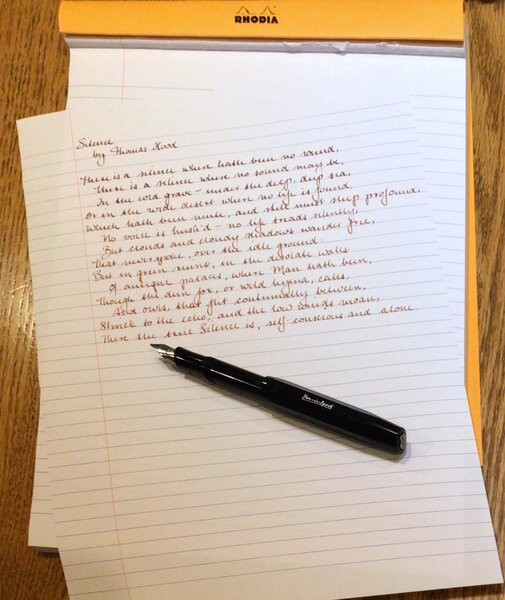 RHODIA
Silence
by Thomas Hood
There is a silence where hath been no sound,
There is a silence where no sound may be,
In the cold grave - under the deep, deep sea,
Or in the wide desert where no life is found,
Which hath been mute, and still must sleep profound;
No voice is hush'd - no life treads silently,
But clouds and cloudy shadows wander free,
That never spoke, over the idle ground:
But in green ruins, in the desolate walls
Of antique palaces, where Man hath been,
Though the dun fox, or wild hyena, calls,
And owls, that flit continually between,
Shriek to the echo, and the low winds moan,
There the true Silence is, self-conscious and alone.
Kaweco Sport